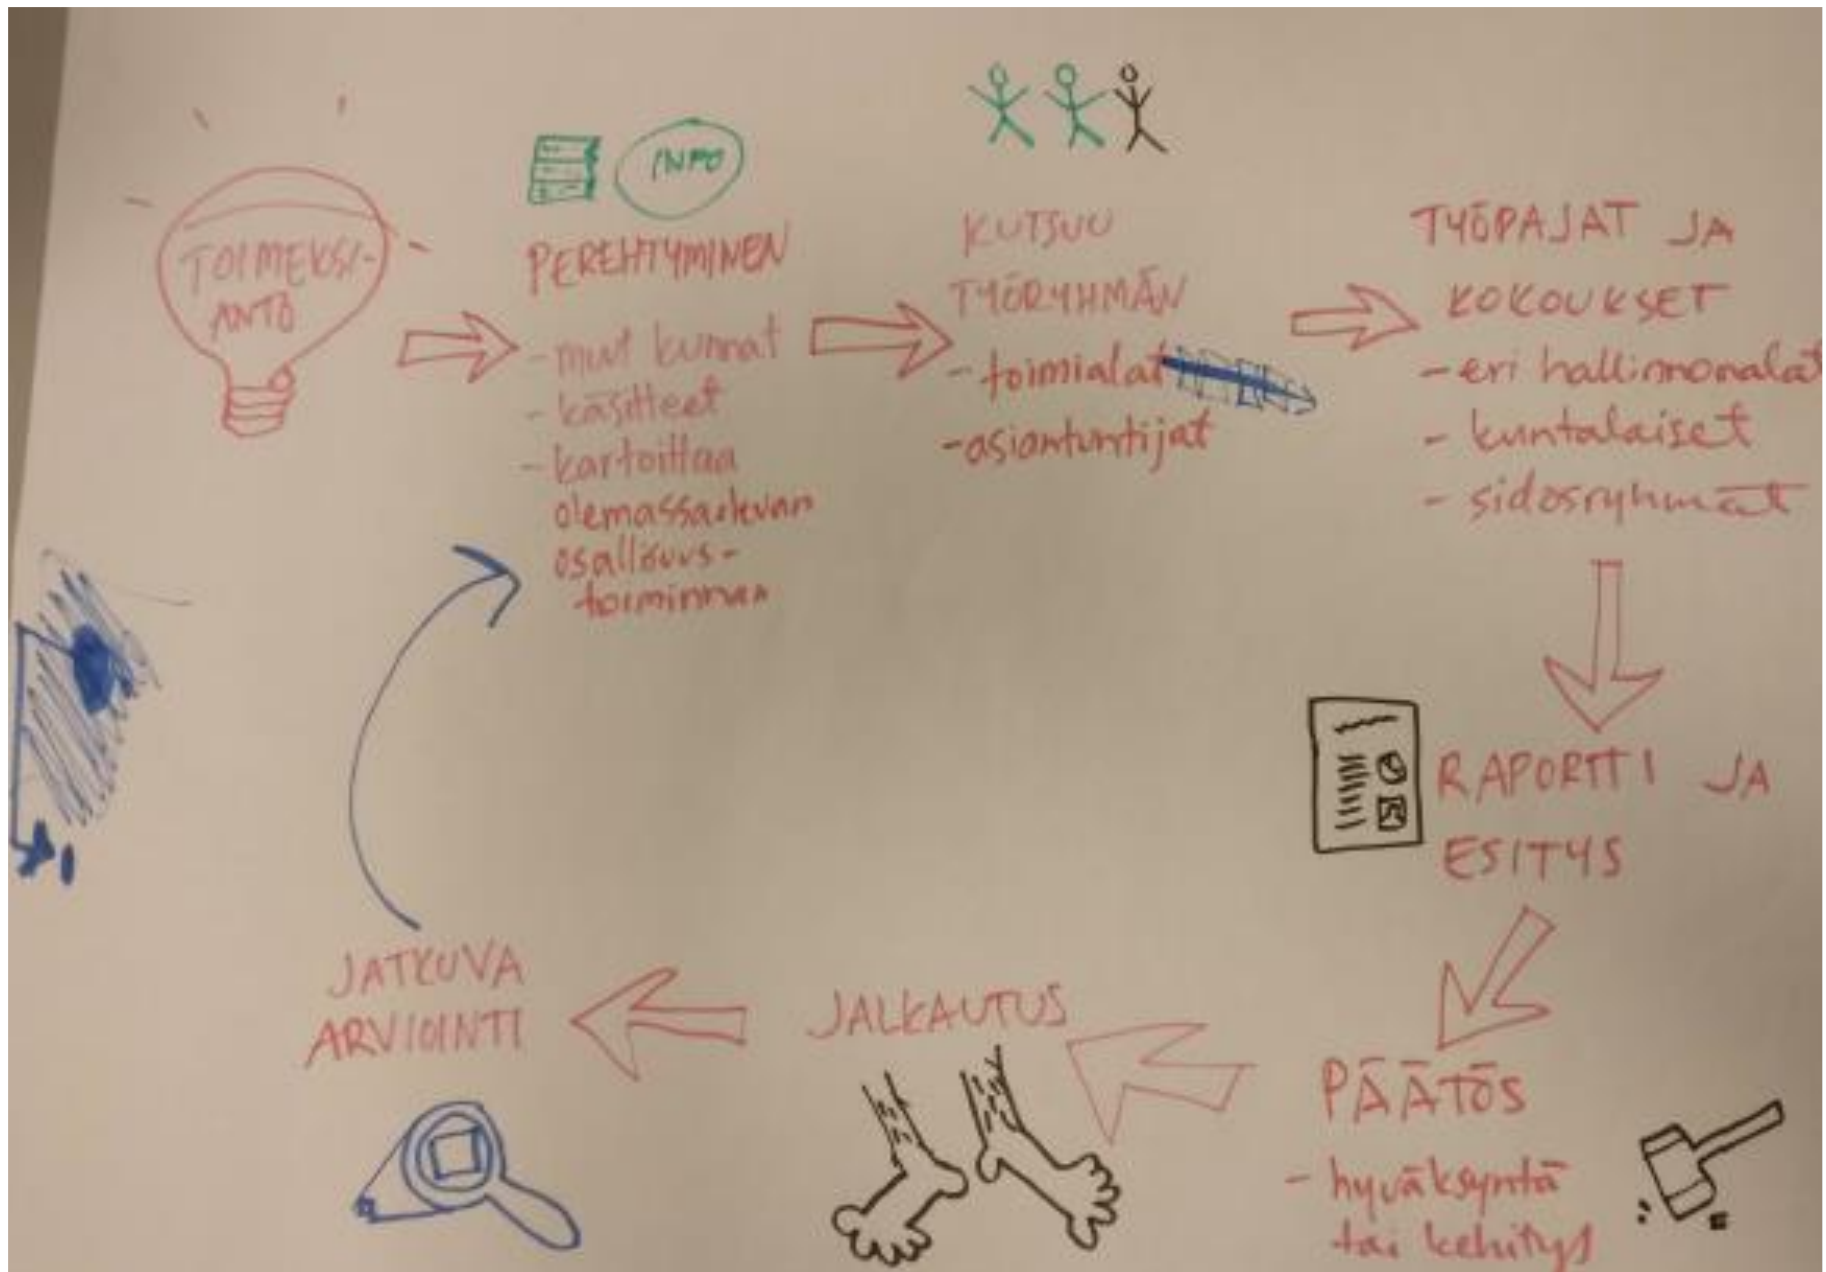 TOIMEKSI-
ANTO
INFO
PEREHTYMINEN
- muut kunnat
- käsitteet
- kartoittaa
olemassaolevan
osallisuus-
toiminnan
KUTSUU
TYÖRYHMÄN
- toimialat
- asiantuntijat
TYÖPAJAT JA
KOKOUKSET
- eri hallinnonalat
- kuntalaiset
- sidosryhmät
RAPORTTI JA
ESITYS
PÄÄTÖS
- hyväksyntä
tai kehitys
JALKAUTUS
JATKUVA
ARVIOINTI